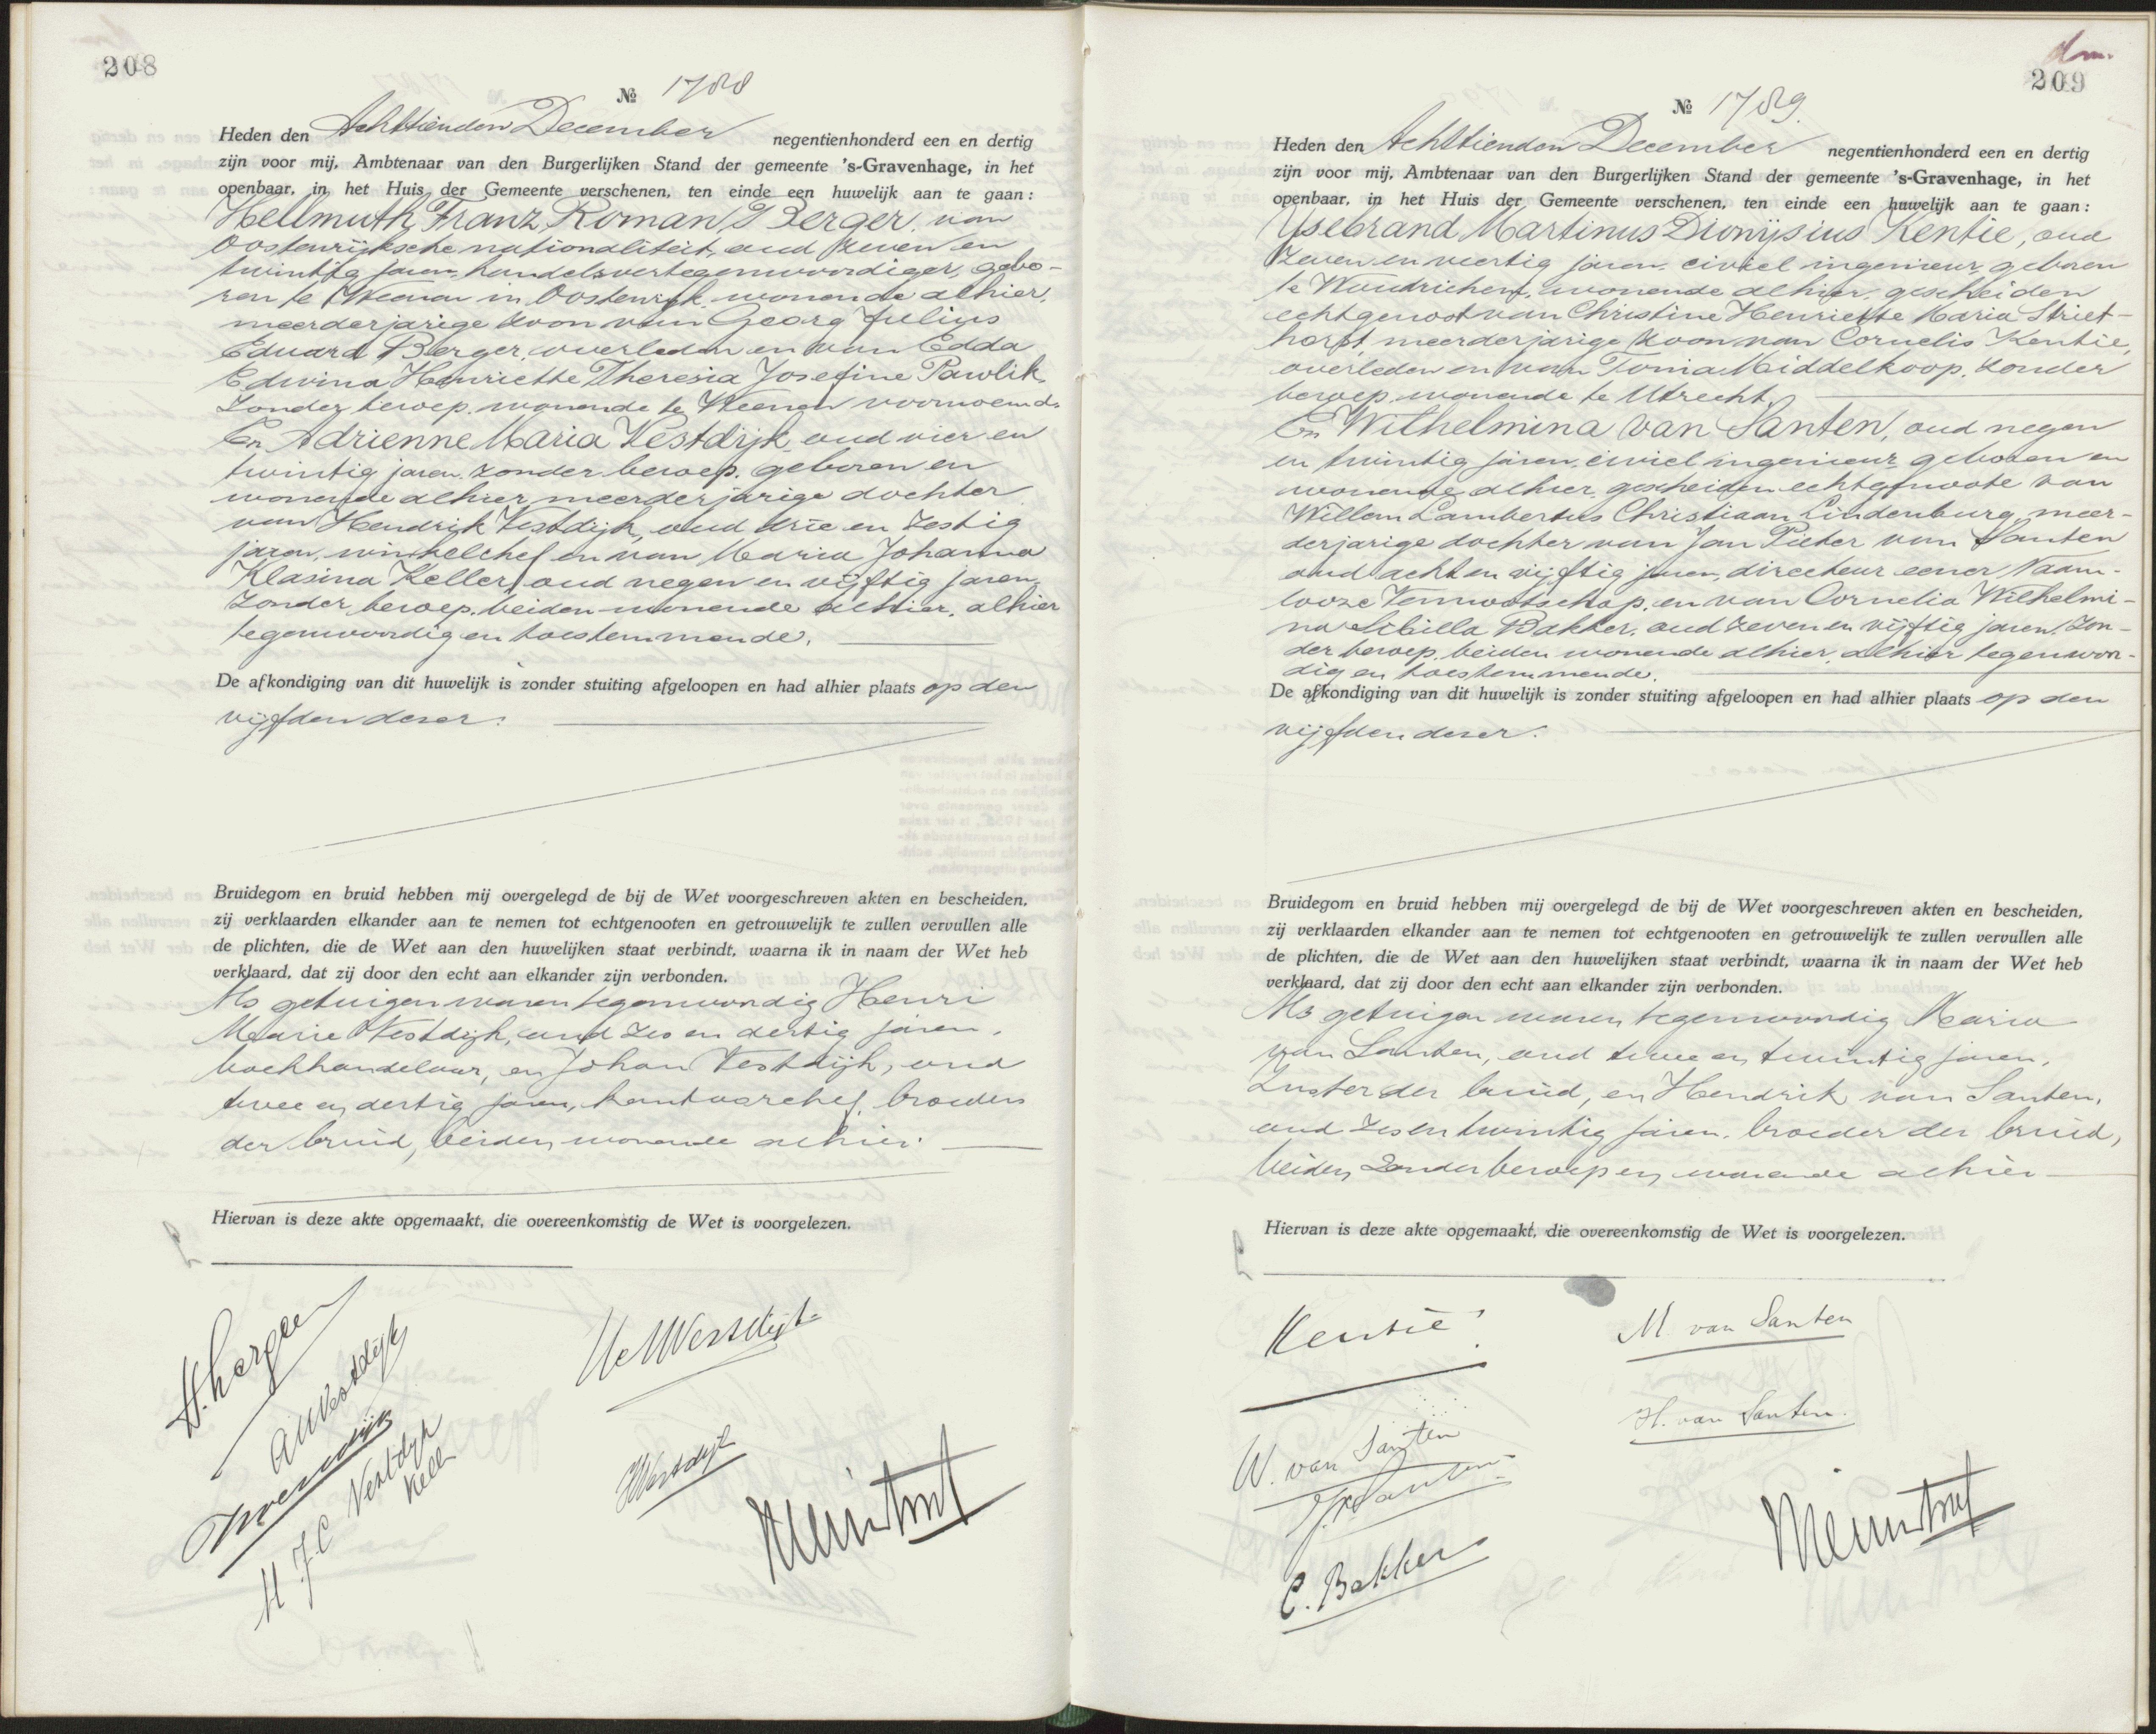 208
№ 1788
Heden den Achttienden December negentienhonderd een en dertig
zijn voor mij, Ambtenaar van den Burgerlijken Stand der gemeente 's-Gravenhage, in het
openbaar, in het Huis der Gemeente verschenen, ten einde een huwelijk aan te gaan:
Hellmuth Franz Roman Berger, van
Oostenrijksche nationaliteit, oud zeven en
twintig jaren, handelsvertegenwoordiger, gebo-
ren te Weenen in Oostenrijk, wonende alhier,
meerderjarige zoon van Georg Julius
Eduard Berger, overleden en van Edda
Edwina Henriette Theresia Josefine Pawlik,
zonder beroep, wonende te Weenen voornoemd.
En Adrienne Maria Vestdijk, oud vier en
twintig jaren, zonder beroep, geboren en
wonende alhier, meerderjarige dochter
van Hendrijk Vestdijk, oud drie en zestig
jaren, winkelchef en van Maria Johanna
Klasina Keller, oud negen en vijftig jaren,
zonder beroep, beiden wonende alhier, alhier
tegenwoordig en toestemmende.
De afkondiging van dit huwelijk is zonder stuiting afgeloopen en had alhier plaats op den
vijfden dezer.
Bruidegom en bruid hebben mij overgelegd de bij de Wet voorgeschreven akten en bescheiden,
zij verklaarden elkander aan te nemen tot echtgenooten en getrouwelijk te zullen vervullen alle
de plichten, die de Wet aan den huwelijken staat verbindt, waarna ik in naam der Wet heb
verklaard, dat zij door den echt aan elkander zijn verbonden.
Als getuigen waren tegenwoordig Henri
Marie Vestdijk, oud zes en dertig jaren,
boekhandelaar, en Johan Vestdijk, oud
twee en dertig jaren, kantoorchef, broeders
der bruid, beiden wonende alhier.
Hiervan is deze akte opgemaakt, die overeenkomstig de Wet is voorgelezen.
H. Berger
AMVestdijk
HVestdijk
M J C Vestdijk
Kell
HMVestdijk
JVestdijk
dm.
209
№ 1789.
Heden den Achttienden December negentienhonderd een en dertig
zijn voor mij, Ambtenaar van den Burgerlijken Stand der gemeente 's-Gravenhage, in het
openbaar, in het Huis der Gemeente verschenen, ten einde een huwelijk aan te gaan:
IJsebrand Martinus Dionijsius Kentie, oud
zeven en veertig jaren, civiel ingenieur, geboren
te Woudrichem, wonende alhier, gescheiden
echtgenoot van Christine Henriette Maria Striet-
horst, meerderjarige zoon van Cornelis Kentie,
overleden en van Tonia Middelkoop, zonder
beroep, wonende te Utrecht.
En Wilhelmina van Santen, oud negen
en twintig jaren, civiel ingenieur, geboren en
wonende alhier, gescheiden echtgenoote van
Willem Lambertus Christiaan Lindenburg, meer-
derjarige dochter van Jan Pieter van Santen
oud acht en vijftig jaren, directeur eener Naam-
looze Vennootschap, en van Cornelia Wilhelmi-
na Sibilla Bakker, oud zeven en vijftig jaren, zon-
der beroep, beiden wonende alhier, alhier tegenwoor-
dig en toestemmende.
De afkondiging van dit huwelijk is zonder stuiting afgeloopen en had alhier plaats op den
vijfden dezer.
Bruidegom en bruid hebben mij overgelegd de bij de Wet voorgeschreven akten en bescheiden,
zij verklaarden elkander aan te nemen tot echtgenooten en getrouwelijk te zullen vervullen alle
de plichten, die de Wet aan den huwelijken staat verbindt, waarna ik in naam der Wet heb
verklaard, dat zij door den echt aan elkander zijn verbonden.
Als getuigen waren tegenwoordig Maria
van Santen, oud twee en twintig jaren,
zuster der bruid, en Hendrik van Santen,
oud zes en twintig jaren, broeder der bruid,
beiden zonder beroep en wonende alhier
Hiervan is deze akte opgemaakt, die overeenkomstig de Wet is voorgelezen.
Kentie
M. van Santen
H. van Santen.
W. van Santen
JPvSanten
C. Bakker